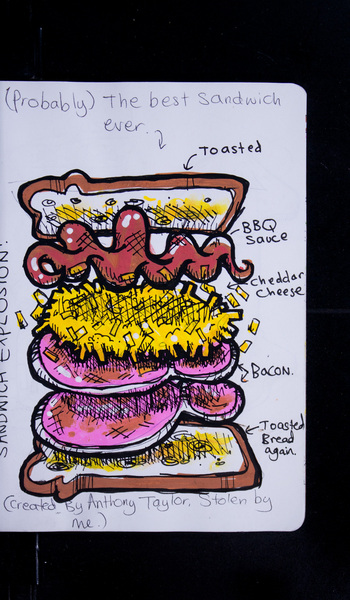 (Probably) The best Sandwich
ever.
Toasted
BBQ
Sauce
Cheddar
Cheese
BACON.
Toasted
Bread
again.
SANDWICH EXPLOSION!
(Created By Anthony Taylor, Stolen by
me.)